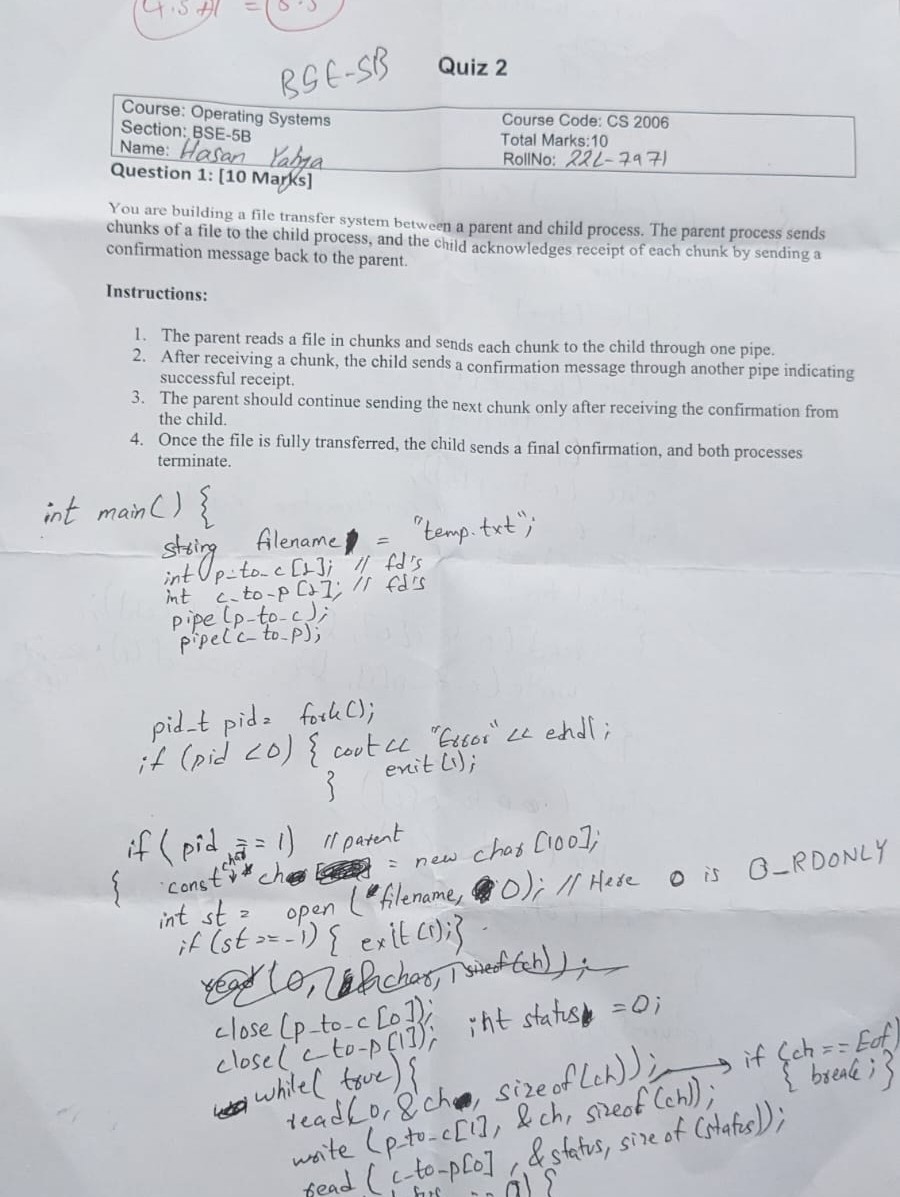 4.5 + 1 = 5.5
BSE-5B
Quiz 2
Course: Operating Systems
Section: BSE-5B
Name: Hasan Yahya
Course Code: CS 2006
Total Marks:10
RollNo: 22L-7971
Question 1: [10 Marks]
You are building a file transfer system between a parent and child process. The parent process sends
chunks of a file to the child process, and the child acknowledges receipt of each chunk by sending a
confirmation message back to the parent.
Instructions:
1. The parent reads a file in chunks and sends each chunk to the child through one pipe.
2. After receiving a chunk, the child sends a confirmation message through another pipe indicating
successful receipt.
3. The parent should continue sending the next chunk only after receiving the confirmation from
the child.
4. Once the file is fully transferred, the child sends a final confirmation, and both processes
terminate.
int main() {
string filename = "temp.txt";
int p_to_c [2]; // fd's
int c_to_p [2]; // fd's
pipe (p_to_c);
pipe(c_to_p);
pid_t pid = fork();
if (pid <0) { cout << "Error" << endl;
exit (1);
}
if ( pid == 1) // parent
{ const char * ch = new char [100];
int st = open (filename, 0); // Here 0 is O_RDONLY
if (st == -1) { exit (1);}
close (p_to_c [0]);
close( c_to_p [1]); int status =0;
while( true) {
read(0, &ch, sizeof(ch)); → if (ch == Eof)
{ break; }
write (p_to_c[1], &ch, sizeof (ch));
read ( c_to_p[0] , &status, size of (status));